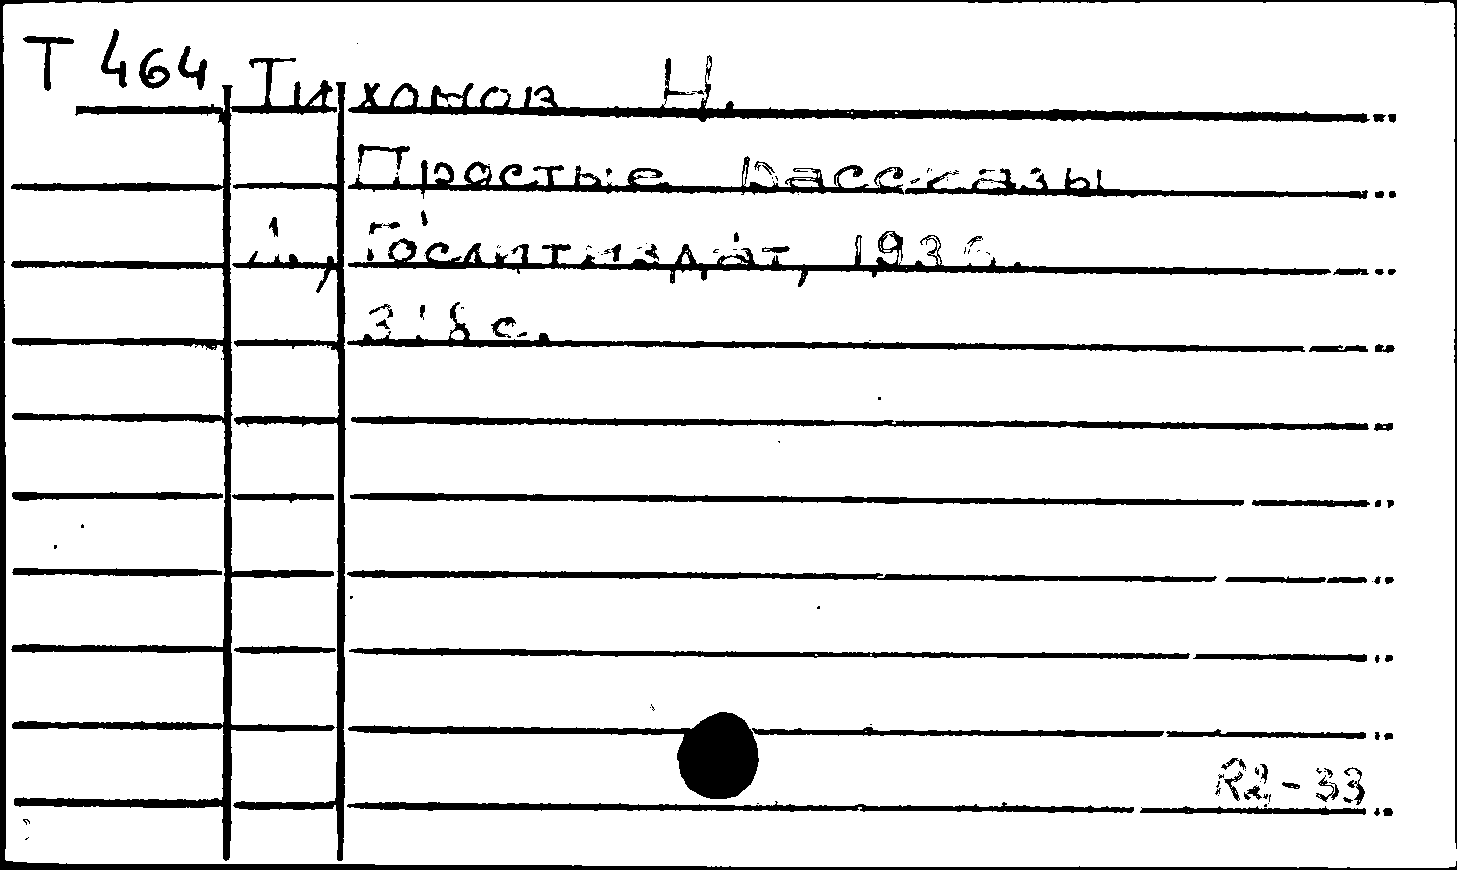 Т 464
Тихонов Н.
Простые рассказы
Л., Гослитиздат, 1936.
318 с.
R2-33